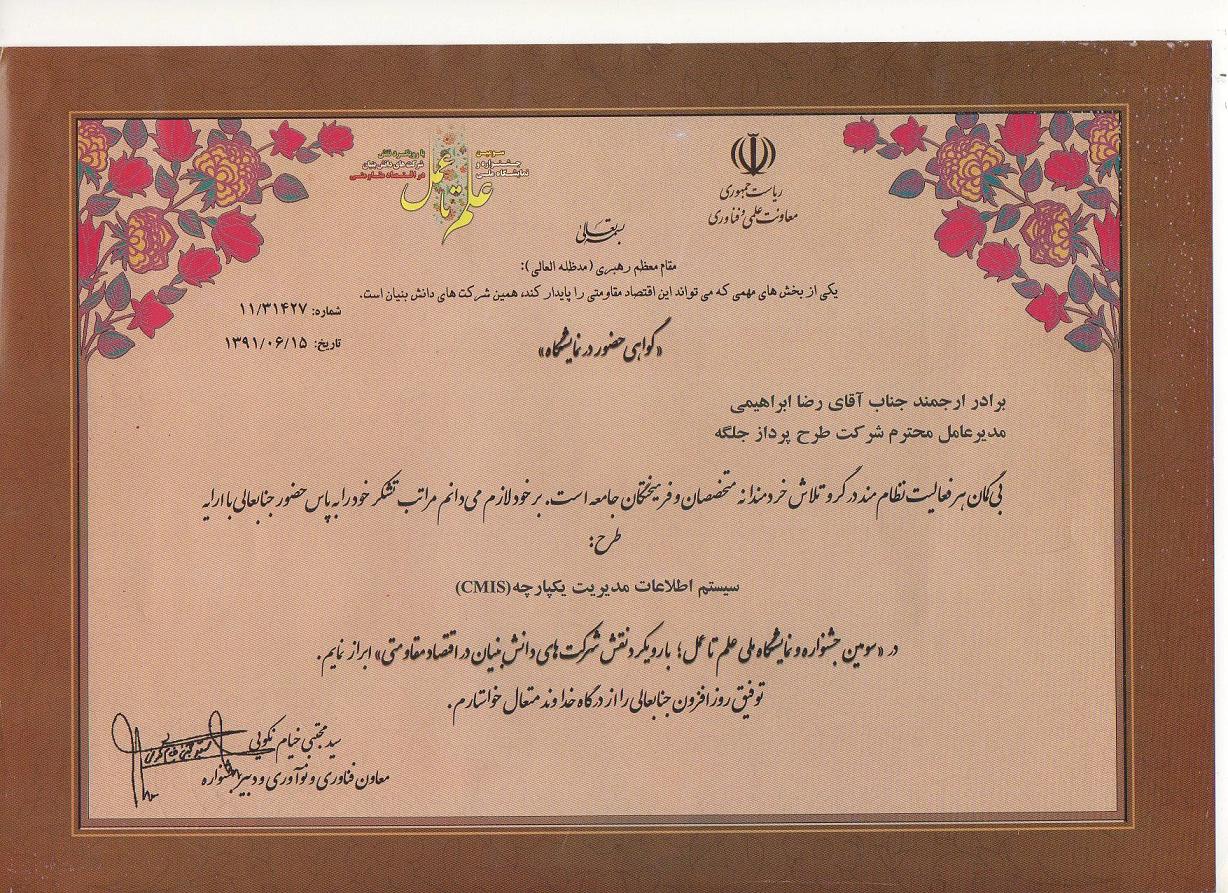 سومین
جشنواره و
نمایشگاه ملی
علم تا عمل
با رویکرد نقش
شرکت های دانش بنیان
در اقتصاد مقاومتی
ریاست جمهوری
معاونت علمی و فناوری
بسمه تعالی
مقام معظم رهبری (مدظله العالی):
یکی از بخش های مهمی که می تواند این اقتصاد مقاومتی را پایدار کند، همین شرکت های دانش بنیان است.
شماره: ۱۱/۳۱۴۲۷
تاریخ: ۱۳۹۱/۰۶/۱۵
«گواهی حضور در نمایشگاه»
برادر ارجمند جناب آقای رضا ابراهیمی
مدیرعامل محترم شرکت طرح پرداز جلگه
بی گمان هر فعالیت نظام مند در گرو تلاش خردمندانه متخصصان و فرهیختگان جامعه است. بر خود لازم می دانم مراتب تشکر خود را به پاس حضور جنابعالی با ارایه
طرح:
سیستم اطلاعات مدیریت یکپارچه(CMIS)
در «سومین جشنواره و نمایشگاه ملی علم تا عمل؛ با رویکرد نقش شرکت های دانش بنیان در اقتصاد مقاومتی» ابراز نمایم.
توفیق روز افزون جنابعالی را از درگاه خداوند متعال خواستارم.
سید مجتبی خیام نکویی
معاون فناوری و نوآوری و دبیر جشنواره